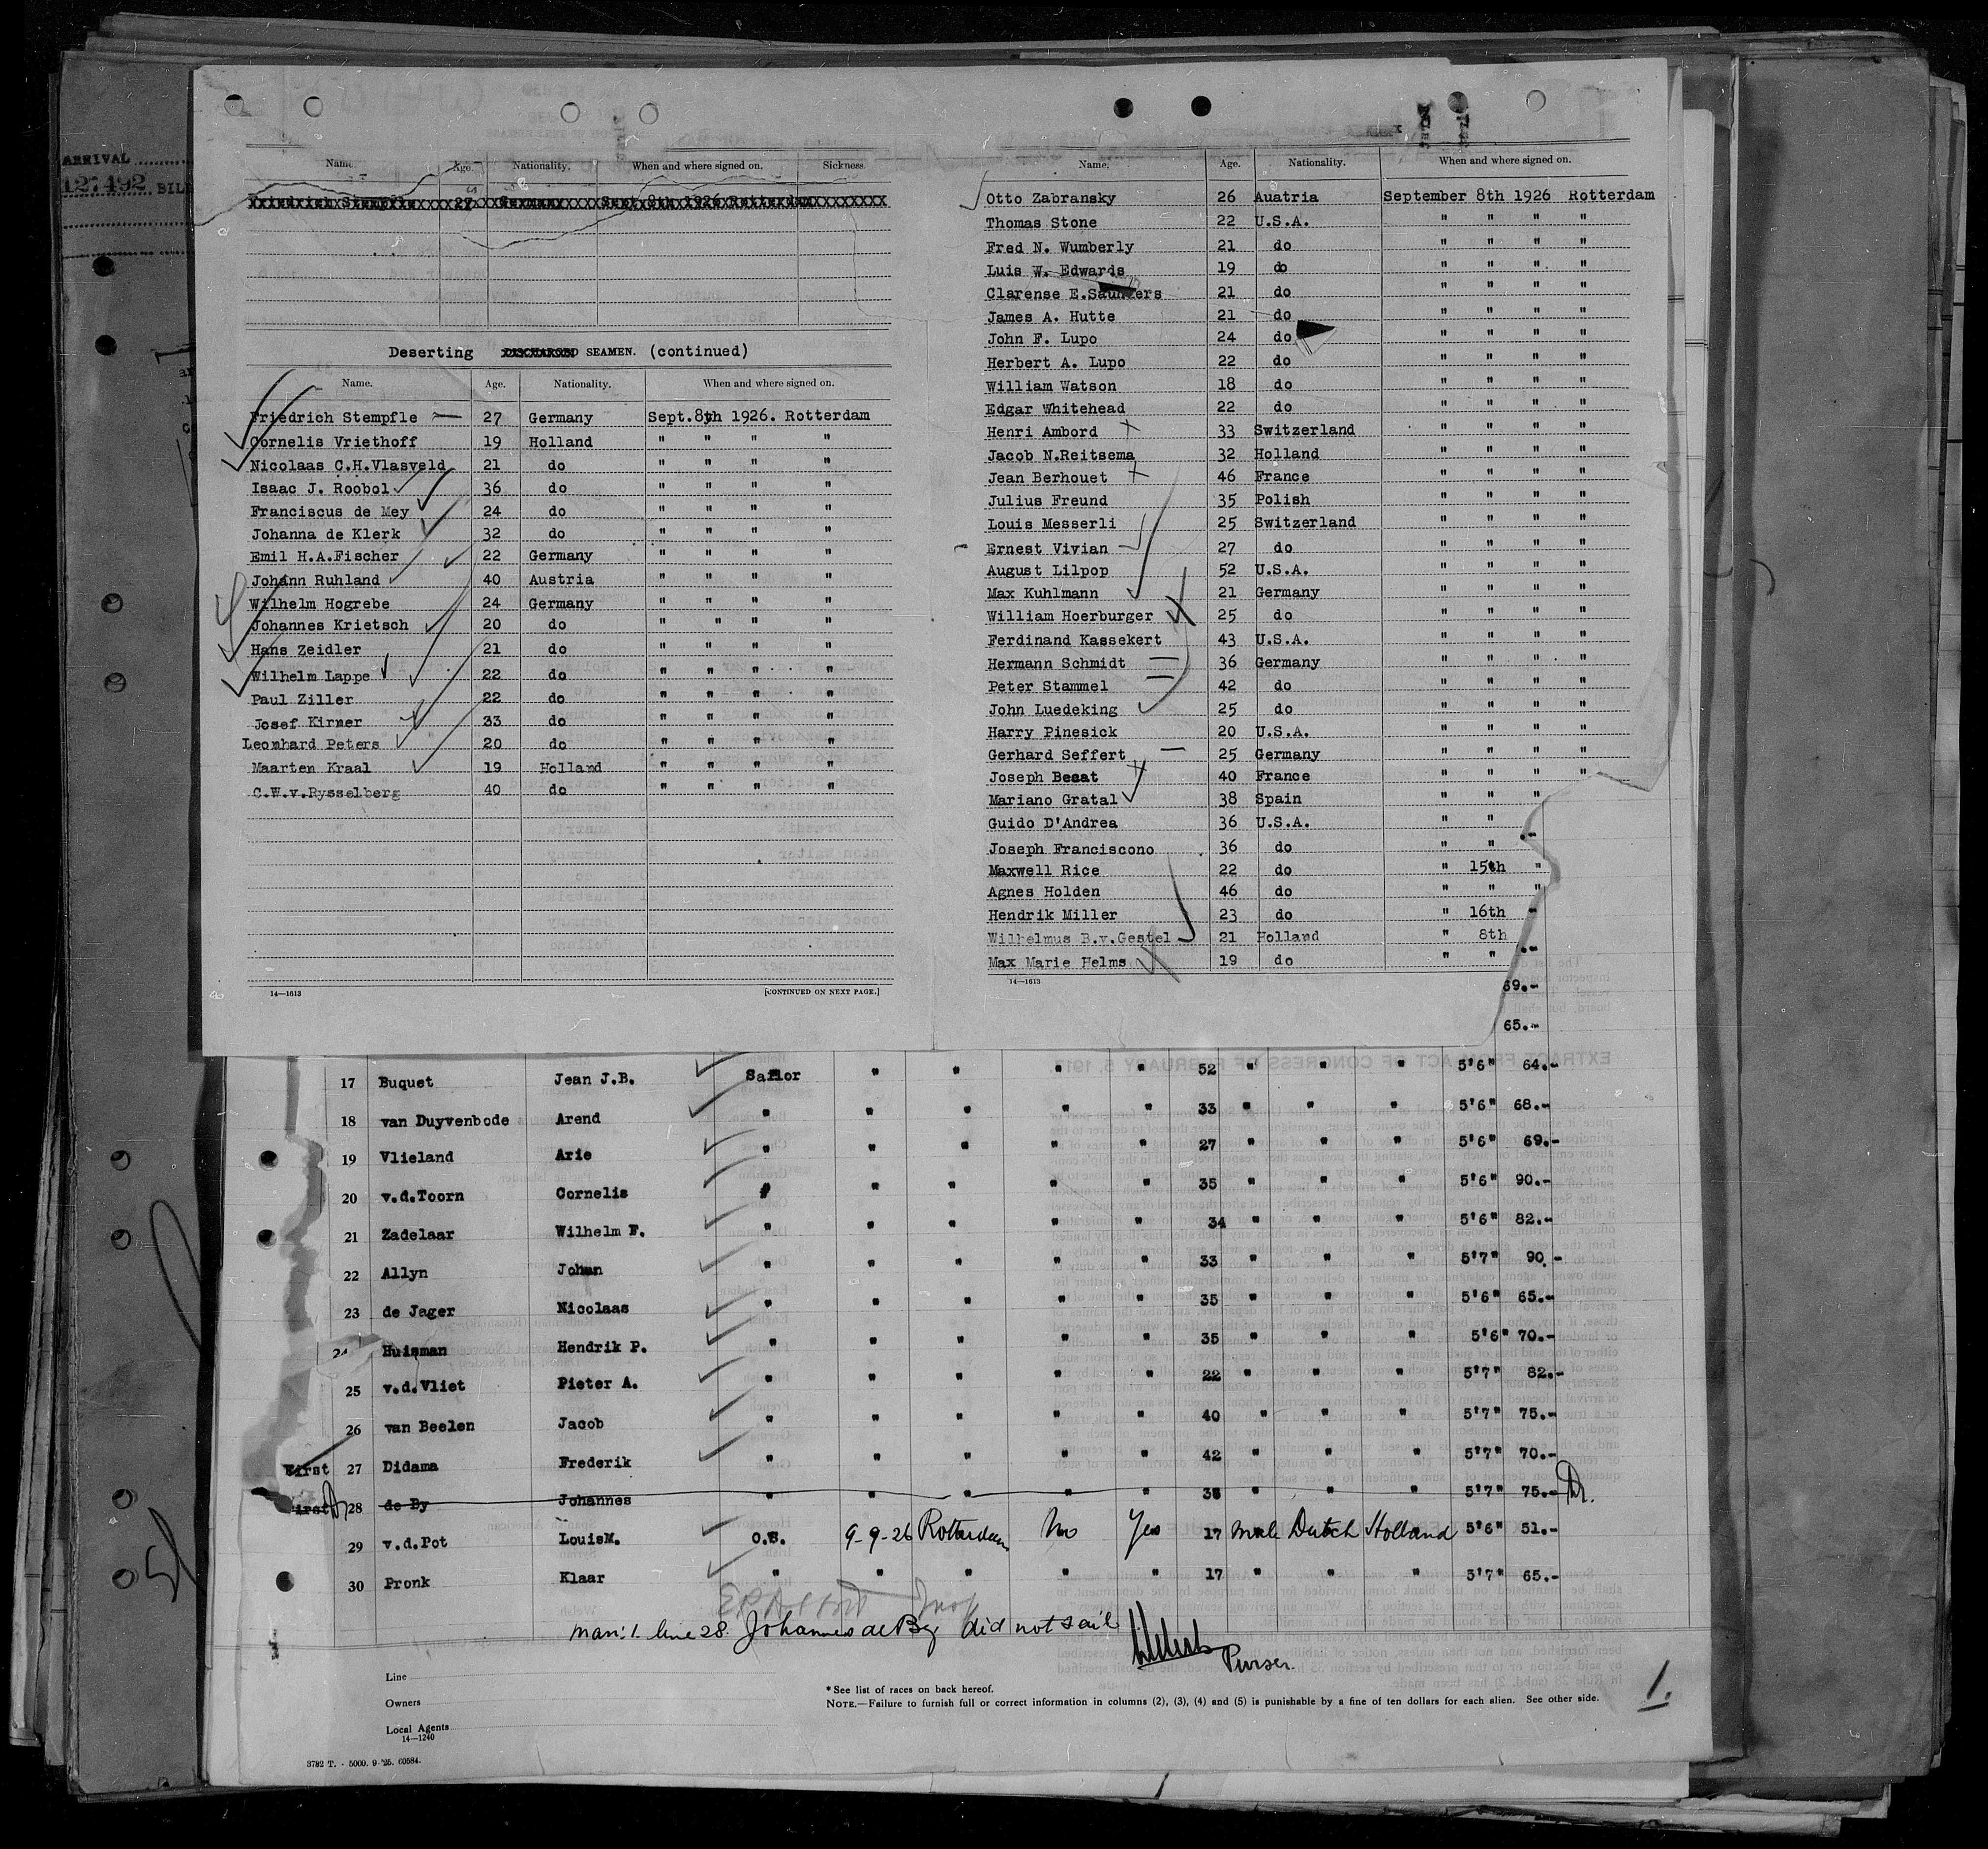 ARRIVAL
127492 BILL
Name. Age. Nationality. When and where signed on. Sickness.
Friedrich Stempfle 27 Germany Sept. 8th 1926 Rotterdam
Deserting DISCHARGED SEAMEN. (continued)
Name. Age. Nationality. When and where signed on.
Friedrich Stempfle 27 Germany Sept.8th 1926. Rotterdam
Cornelis Vriethoff 19 Holland " " " "
Nicolaas C.H.Vlasveld 21 do " " " "
Isaac J. Roobol 36 do " " " "
Franciscus de Mey 24 do " " " "
Johanna de Klerk 32 do " " " "
Emil H.A.Fischer 22 Germany " " " "
Johann Ruhland 40 Austria " " " "
Wilhelm Hogrebe 24 Germany " " " "
Johannes Krietsch 20 do " " " "
Hans Zeidler 21 do " " " "
Wilhelm Lappe 22 do " " " "
Paul Ziller 22 do " " " "
Josef Kirner 33 do " " " "
Leonhard Peters 20 do " " " "
Maarten Kraal 19 Holland " " " "
C.W.v.Rysselberg 40 do " " " "
14—1613 [CONTINUED ON NEXT PAGE.]
Name. Age. Nationality. When and where signed on.
Otto Zabransky 26 Auatria September 8th 1926 Rotterdam
Thomas Stone 22 U.S.A. " " " "
Fred N. Wumberly 21 do " " " "
Luis W. Edwards 19 do " " " "
Clarense E.Saunders 21 do " " " "
James A. Hutte 21 do " " " "
John F. Lupo 24 do " " " "
Herbert A. Lupo 22 do " " " "
William Watson 18 do " " " "
Edgar Whitehead 22 do " " " "
Henri Ambord 33 Switzerland " " " "
Jacob N.Reitsema 32 Holland " " " "
Jean Berhouet 46 France " " " "
Julius Freund 35 Polish " " " "
Louis Messerli 25 Switzerland " " " "
Ernest Vivian 27 do " " " "
August Lilpop 52 U.S.A. " " " "
Max Kuhlmann 21 Germany " " " "
William Hoerburger 25 do " " " "
Ferdinand Kassekert 43 U.S.A. " " " "
Hermann Schmidt 36 Germany " " " "
Peter Stammel 42 do " " " "
John Luedeking 25 do " " " "
Harry Pinesick 20 U.S.A. " " " "
Gerhard Seffert 25 Germany " " " "
Joseph Besat 40 France " " " "
Mariano Gratal 38 Spain " " "
Guido D'Andrea 36 U.S.A. " "
Joseph Franciscono 36 do " "
Maxwell Rice 22 do " 15th "
Agnes Holden 46 do " " "
Hendrik Miller 23 do " 16th "
Wilhelmus B.v.Gestel 21 Holland " 8th
Max Marie Helms 19 do " "
14—1613
69.-
65.-
17 Buquet Jean J.B. Sailor " " " " 52 " " " 5'6" 64.-
18 van Duyvenbode Arend " " " " " 33 " " " 5'6" 68.-
19 Vlieland Arie " " " " " 27 " " " 5'6" 69.-
20 v.d.Toorn Cornelis " " " " " 35 " " " 5'6" 90.-
21 Zadelaar Wilhelm F. " " " " " 34 " " " 5'6" 82.-
22 Allyn Johan " " " " " 33 " " " 5'7" 90.-
23 de Jager Nicolaas " " " " " 35 " " " 5'6" 65.-
24 Huisman Hendrik P. " " " " " 35 " " " 5'6" 70.-
25 v.d.Vliet Pieter A. " " " " " 22 " " " 5'7" 82.-
26 van Beelen Jacob " " " " " 40 " " " 5'7" 75.-
First 27 Didama Frederik " " " " " 42 " " " 5'7" 70.-
First 28 de By Johannes " " " " " " " " 5'7" 75.-
29 v.d.Pot LouisM. O.S. 9-9-26 Rotterdam No Yes 17 male Dutch Holland 5'6" 51.-
30 Pronk Klaar " " " " " 17 " " " 5'7" 65.-
Man: 1. line 28. Johannes de By did not sail
Purser.
Line
Owners
Local Agents
14—1240
* See list of races on back hereof.
NOTE.—Failure to furnish full or correct information in columns (2), (3), (4) and (5) is punishable by a fine of ten dollars for each alien. See other side.
1.
3782 T. - 5000. 9-'25. 60584.